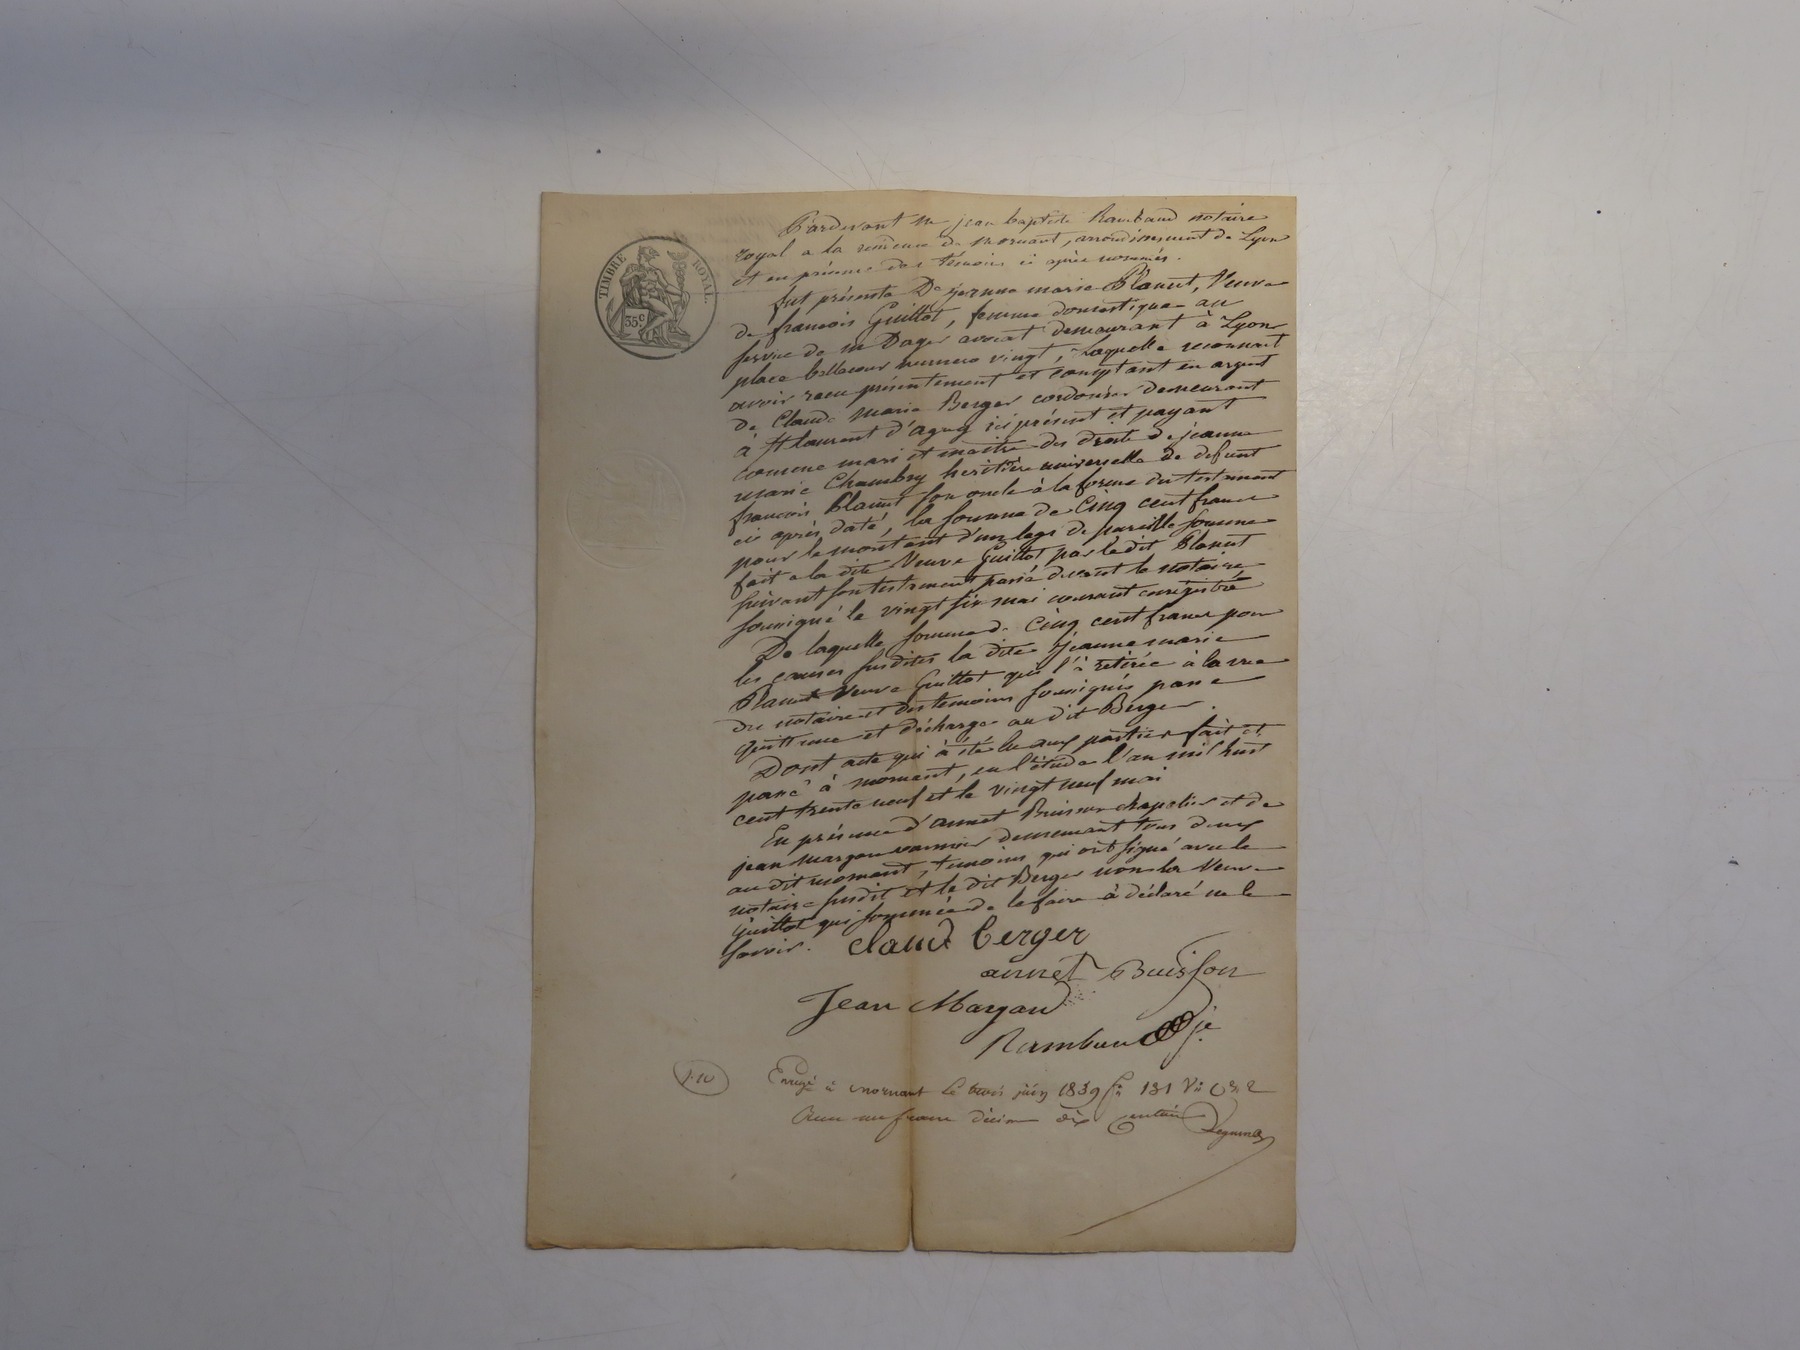 TIMBRE ROYAL.
35c
Pardevant Me jean baptiste Rambaud notaire
royal a la residence de mornant, arrondissement de Lyon
et en présence des témoins ci après nommés.
fut présente De jeanne marie Planut, Veuve
de francois Guillot, femme domestique au
service de me Dager avocat demeurant à Lyon
place bellecour numero vingt, Laquelle reconnait
avoir recu présentement et comptant en argent
de Claude Marie Berger cordonier demeurant
à St laurent d'agny ici présent et payant
comme mari et maitre des droits de jeanne
marie Chambry heritière universelle de defunt
francois Planut son oncle à la forme du testament
ci après daté, la somme de Cinq cent francs
pour le montant d'un legs de pareille somme
fait a la dite Veuve Guillot par le dit Planut
suivant son testament passé devant le notaire
soussigné le vingt six mai courant enregistré
De laquelle somme de Cinq cent francs pour
les causes susdites la dite jeanne marie
Planut Veuve Guillot qui l'à retirée à la vue
du notaire et des temoins soussignés passe
quittance et décharge au dit Berger.
Dont acte qui à été lu aux parties fait et
passé à mornant, en l'étude l'an mil huit
cent trente neuf et le vingt neuf mai
En présence d'annet Buisson chapelier et de
jean margan demeurant tous deux
au dit mornant, temoins qui ont signé avec le
notaire susdit et le dit Berger non la Veuve
Guillot qui sommée de le faire à déclaré ne le
savoir.
claude berger
annet Buisson
Jean Margan
Rambaud je
1.10
Enregé à mornant Le trois juin 1839 fo 131 Vo C 3, 2
Recu un franc décime dix centimes